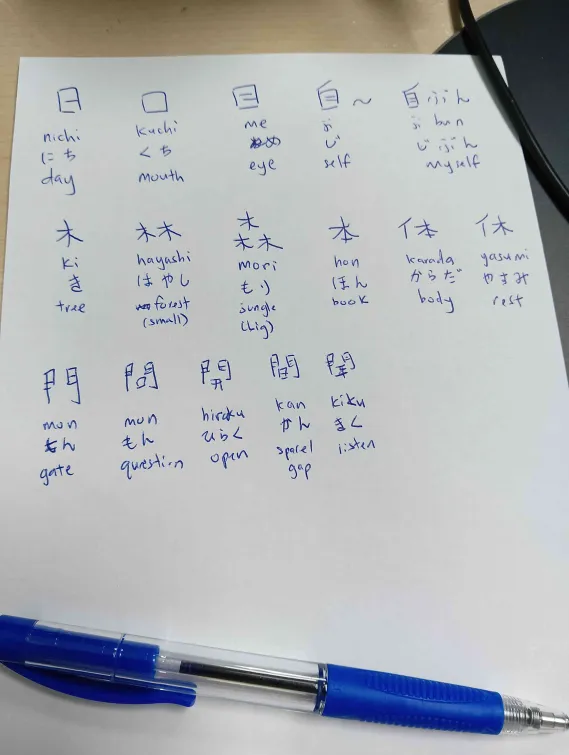 日 口 目 自～ 自ぶん
nichi kuchi me ji ji bun
にち くち め じ じぶん
day mouth eye self myself
木 林 森 本 体 休
ki hayashi mori hon karada yasumi
き はやし もり ほん からだ やすみ
tree forest jungle book body rest
(small) (big)
門 問 開 間 聞
mon mon hiraku kan kiku
もん もん ひらく かん きく
gate question open space/ listen
gap